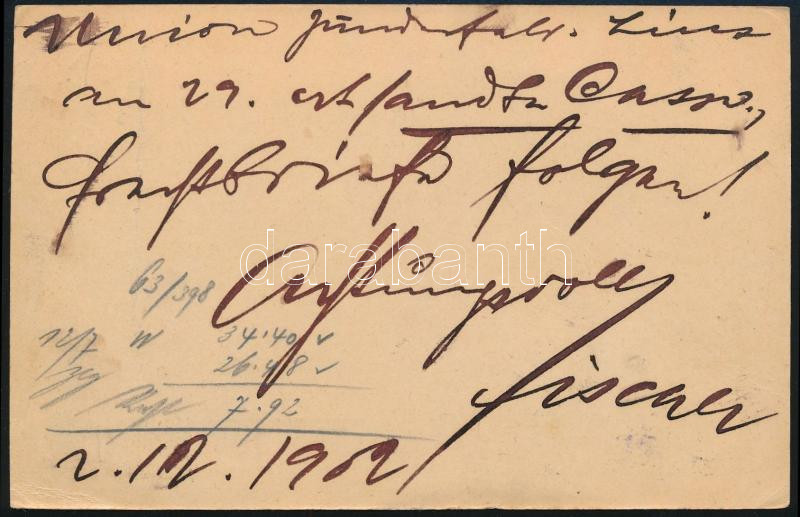 Union Zünderfabr. Linz
am 29. ert sandte Cassa,
Frachtbriefe folgen!
Achtungsvoll
Fischer
63/398
12/7 W 34.40 ✓
26.48 ✓
7.92
2.12.1902
darabanth